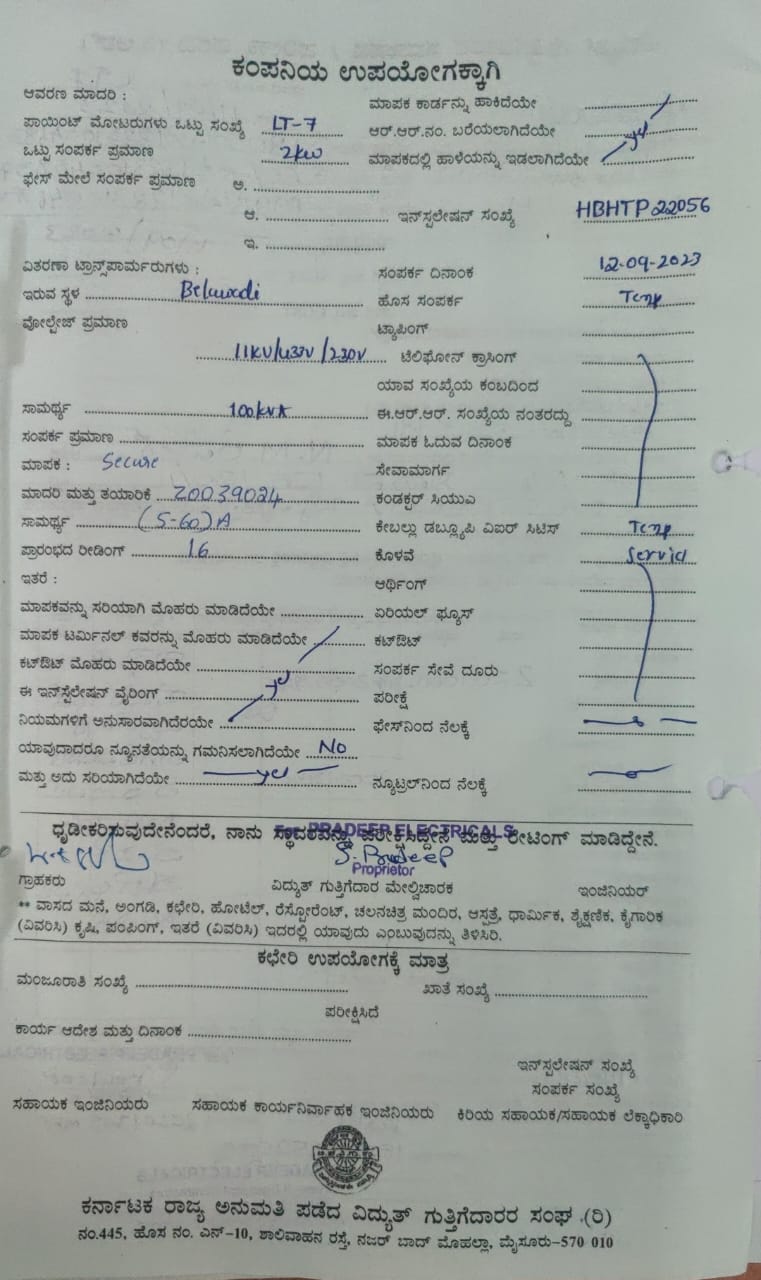 ಕಂಪನಿಯ ಉಪಯೋಗಕ್ಕಾಗಿ
ಆವರಣ ಮಾದರಿ :
ಮಾಪಕ ಕಾರ್ಡನ್ನು ಹಾಕಿದೆಯೇ
ಪಾಯಿಂಟ್ ಮೋಟರುಗಳು ಒಟ್ಟು ಸಂಖ್ಯೆ LT-7 ಆರ್.ಆರ್.ನಂ. ಬರೆಯಲಾಗಿದೆಯೇ
ಒಟ್ಟು ಸಂಪರ್ಕ ಪ್ರಮಾಣ 2kw ಮಾಪಕದಲ್ಲಿ ಹಾಳೆಯನ್ನು ಇಡಲಾಗಿದೆಯೇ
ಫೇಸ್ ಮೇಲೆ ಸಂಪರ್ಕ ಪ್ರಮಾಣ ಅ.
ಆ. ಇನ್‌ಸ್ಪಲೇಷನ್ ಸಂಖ್ಯೆ HBHTP22056
ಇ.
ವಿತರಣಾ ಟ್ರಾನ್ಸ್‌ಪಾರ್ಮರುಗಳು : ಸಂಪರ್ಕ ದಿನಾಂಕ 12-09-2023
ಇರುವ ಸ್ಥಳ Belawadi ಹೊಸ ಸಂಪರ್ಕ Temp
ವೋಲ್ಟೇಜ್ ಪ್ರಮಾಣ ಟ್ಯಾಪಿಂಗ್
11KV/433V/230V ಟೆಲಿಫೋನ್ ಕ್ರಾಸಿಂಗ್
ಯಾವ ಸಂಖ್ಯೆಯ ಕಂಬದಿಂದ
ಸಾಮರ್ಥ್ಯ 100kVA ಈ.ಆರ್.ಆರ್. ಸಂಖ್ಯೆಯ ನಂತರದ್ದು
ಸಂಪರ್ಕ ಪ್ರಮಾಣ ಮಾಪಕ ಓದುವ ದಿನಾಂಕ
ಮಾಪಕ : Secure ಸೇವಾಮಾರ್ಗ
ಮಾದರಿ ಮತ್ತು ತಯಾರಿಕೆ Z0039024 ಕಂಡಕ್ಟರ್ ಸಿಯುಎ
ಸಾಮರ್ಥ್ಯ (5-60)A ಕೇಬಲ್ಲು ಡಬ್ಲ್ಯೂಪಿ ವಿಐಆರ್ ಸಿಟಿಸ್ Temp
ಪ್ರಾರಂಭದ ರೀಡಿಂಗ್ 16 ಕೊಳವೆ Service
ಇತರೆ : ಆರ್ಥಿಂಗ್
ಮಾಪಕವನ್ನು ಸರಿಯಾಗಿ ಮೊಹರು ಮಾಡಿದೆಯೇ ಏರಿಯಲ್ ಫ್ಯೂಸ್
ಮಾಪಕ ಟರ್ಮಿನಲ್ ಕವರನ್ನು ಮೊಹರು ಮಾಡಿದೆಯೇ ಕಟ್‌ಔಟ್
ಕಟ್‌ಔಟ್ ಮೊಹರು ಮಾಡಿದೆಯೇ ಸಂಪರ್ಕ ಸೇವೆ ದೂರು
ಈ ಇನ್‌ಸ್ಟೆಲೇಷನ್ ವೈರಿಂಗ್ ಪರೀಕ್ಷೆ
ನಿಯಮಗಳಿಗೆ ಅನುಸಾರವಾಗಿದೆರಯೇ ಫೇಸ್‌ನಿಂದ ನೆಲಕ್ಕೆ
ಯಾವುದಾದರೂ ನ್ಯೂನತೆಯನ್ನು ಗಮನಿಸಲಾಗಿದೆಯೇ No
ಮತ್ತು ಅದು ಸರಿಯಾಗಿದೆಯೇ yes ನ್ಯೂಟ್ರಲ್‌ನಿಂದ ನೆಲಕ್ಕೆ
For PRADEEP ELECTRICALS
ಧೃಡೀಕರಿಸುವುದೇನೆಂದರೆ, ನಾನು ಸ್ಥಾವರವನ್ನು ಪರೀಕ್ಷಿಸಿದ್ದೇನೆ ಮತ್ತು ರೀಟಿಂಗ್ ಮಾಡಿದ್ದೇನೆ.
S. Pradeep
Proprietor
ಗ್ರಾಹಕರು ವಿದ್ಯುತ್ ಗುತ್ತಿಗೆದಾರ ಮೇಲ್ವಿಚಾರಕ ಇಂಜಿನಿಯರ್
** ವಾಸದ ಮನೆ, ಅಂಗಡಿ, ಕಛೇರಿ, ಹೋಟೆಲ್, ರೆಸ್ಟೋರೆಂಟ್, ಚಲನಚಿತ್ರ ಮಂದಿರ, ಆಸ್ಪತ್ರೆ, ಧಾರ್ಮಿಕ, ಶೈಕ್ಷಣಿಕ, ಕೈಗಾರಿಕ
(ವಿವರಿಸಿ) ಕೃಷಿ, ಪಂಪಿಂಗ್, ಇತರೆ (ವಿವರಿಸಿ) ಇದರಲ್ಲಿ ಯಾವುದು ಎಂಬುವುದನ್ನು ತಿಳಿಸಿರಿ.
ಕಛೇರಿ ಉಪಯೋಗಕ್ಕೆ ಮಾತ್ರ
ಮಂಜೂರಾತಿ ಸಂಖ್ಯೆ ಖಾತೆ ಸಂಖ್ಯೆ
ಪರೀಕ್ಷಿಸಿದೆ
ಕಾರ್ಯ ಆದೇಶ ಮತ್ತು ದಿನಾಂಕ
ಇನ್‌ಸ್ಪಲೇಷನ್ ಸಂಖ್ಯೆ
ಸಂಪರ್ಕ ಸಂಖ್ಯೆ
ಸಹಾಯಕ ಇಂಜಿನಿಯರು ಸಹಾಯಕ ಕಾರ್ಯನಿರ್ವಾಹಕ ಇಂಜಿನಿಯರು ಕಿರಿಯ ಸಹಾಯಕ/ಸಹಾಯಕ ಲೆಕ್ಕಾಧಿಕಾರಿ
ಕರ್ನಾಟಕ ರಾಜ್ಯ ಅನುಮತಿ ಪಡೆದ ವಿದ್ಯುತ್ ಗುತ್ತಿಗೆದಾರರ ಸಂಘ (ರಿ)
ನಂ.445, ಹೊಸ ನಂ. ಎನ್-10, ಶಾಲಿವಾಹನ ರಸ್ತೆ, ನಜರ್ ಬಾದ್ ಮೊಹಲ್ಲಾ, ಮೈಸೂರು-570 010